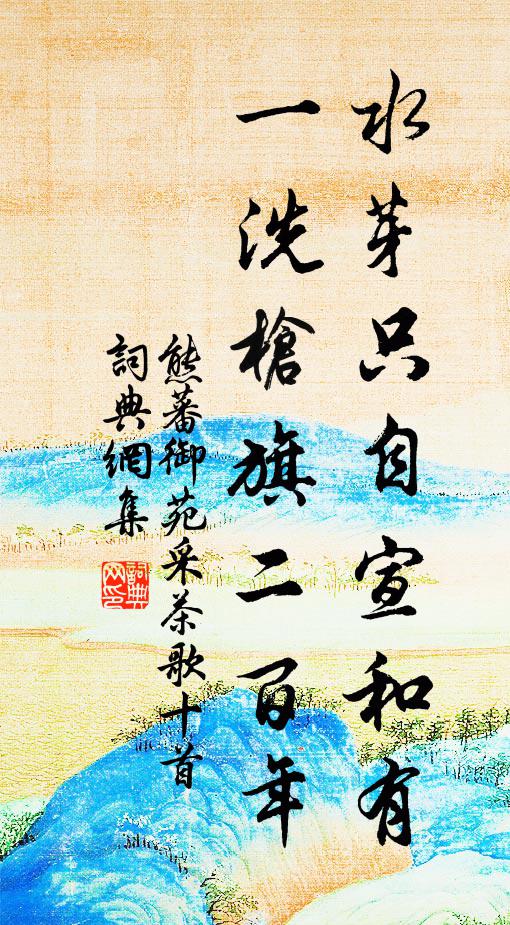 水芽只自宣和有
一洗槍旗二百年
熊蕃御苑采茶歌十首
詞典網集
詞典网印